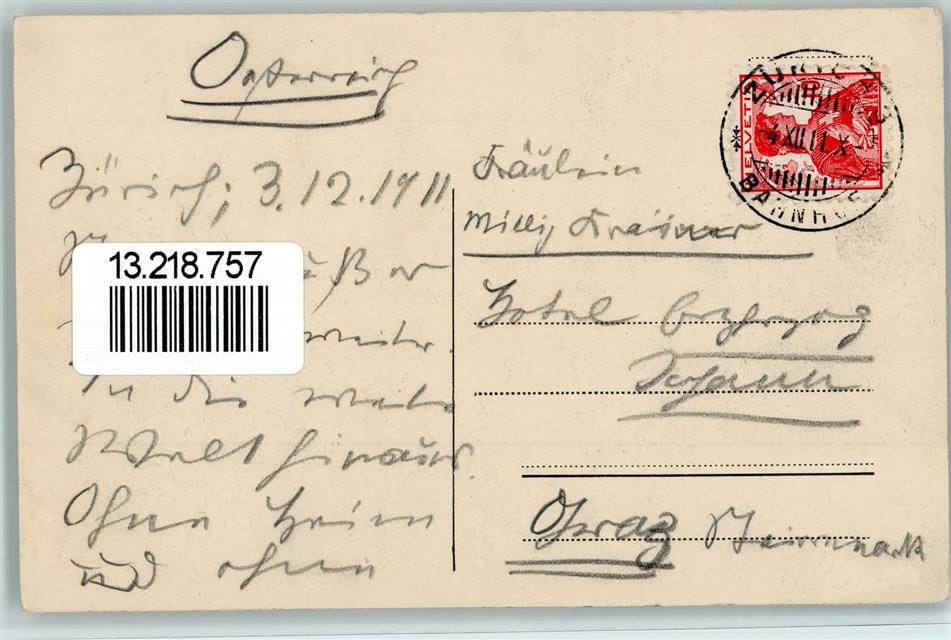 Österreich
Zürich, 3.12.1911
13.218.757
muß er
weiter.
In die weite
Welt hinaus.
Ohne Heim
und ohne
HELVETIA
ZÜRICH
4 XII.11.X
BAHNHOF
Fräulein
Milly
Hotel Erzherzog
Johann
Graz Steiermark